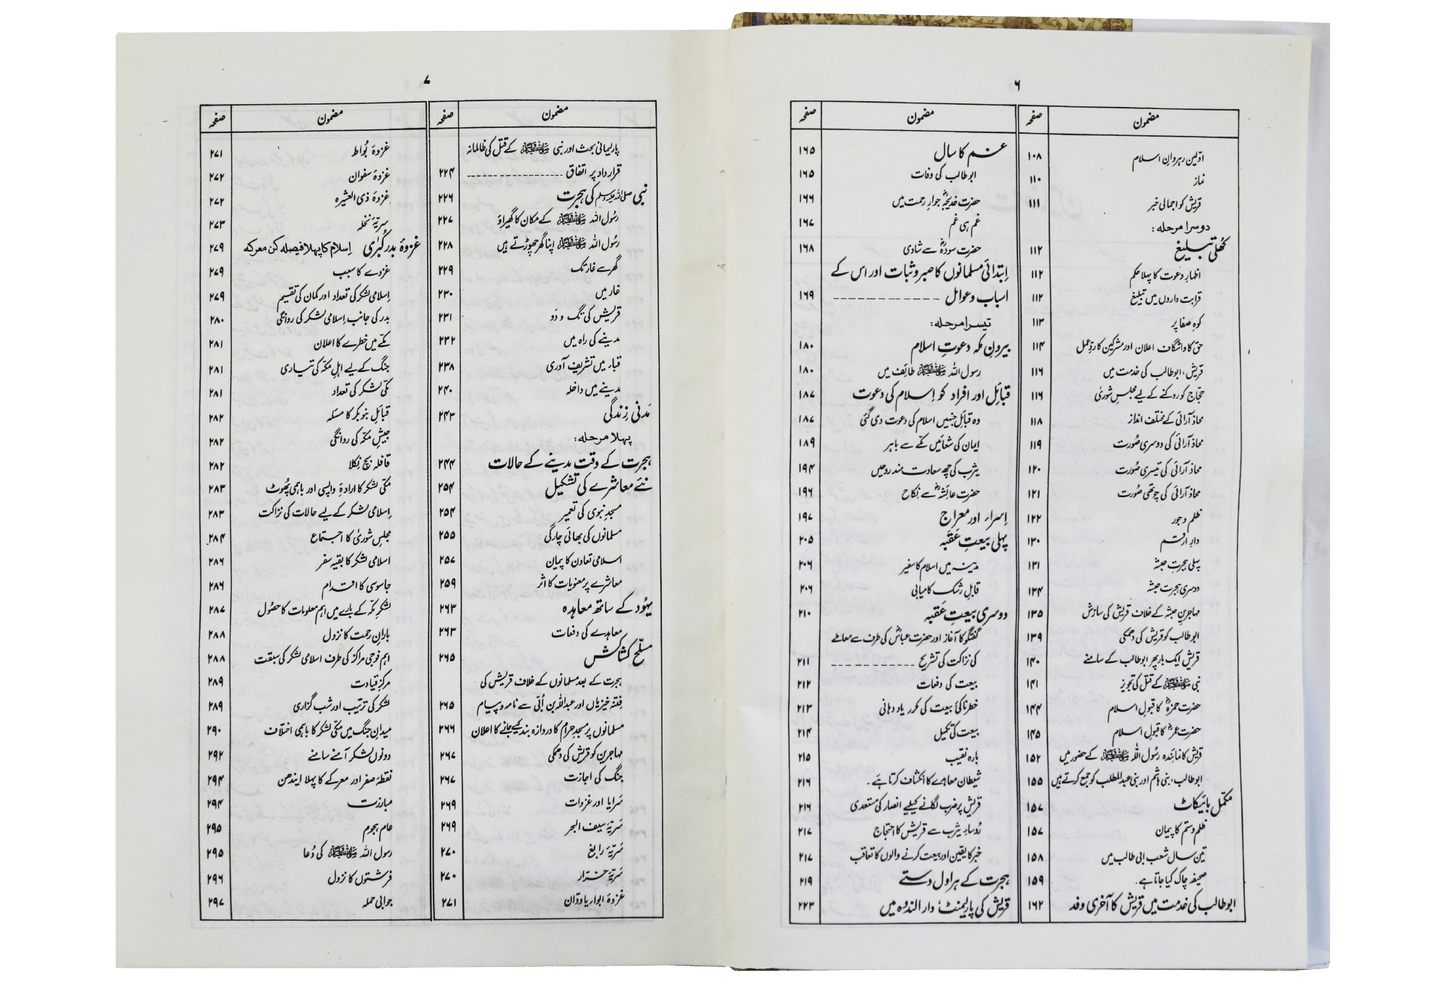 ۶
مضمون صفحہ
اوّلین رہروانِ اسلام ۱۰۸
نماز ۱۱۰
قریش کو اجمالی خبر ۱۱۱
دوسرا مرحلہ:
کھلی تبلیغ ۱۱۲
اظہارِ دعوت کا پہلا حکم ۱۱۲
قرابت داروں میں تبلیغ ۱۱۲
کوہِ صفا پر ۱۱۳
حق کا واشگاف اعلان اور مشرکین کا ردِّ عمل ۱۱۴
قریش، ابوطالب کی خدمت میں ۱۱۶
حجاج کو روکنے کے لیے مجلسِ شوریٰ ۱۱۶
محاذ آرائی کے مختلف انداز ۱۱۸
محاذ آرائی کی دوسری صُورت ۱۱۹
محاذ آرائی کی تیسری صُورت ۱۲۰
محاذ آرائی کی چوتھی صُورت ۱۲۱
ظلم و جور ۱۲۲
دارِ ارقم ۱۳۰
پہلی ہجرتِ حبشہ ۱۳۱
دوسری ہجرتِ حبشہ ۱۳۴
مہاجرینِ حبشہ کے خلاف قریش کی سازش ۱۳۵
ابوطالب کو قریش کی دھمکی ۱۳۹
قریش ایک بار پھر ابوطالب کے سامنے ۱۴۰
نبی ﷺ کے قتل کی تجویز ۱۴۱
حضرت حمزہؓ کا قبولِ اسلام ۱۴۴
حضرت عمرؓ کا قبولِ اسلام ۱۴۵
قریش کا نمائندہ رسُول اللہ ﷺ کے حضور میں ۱۵۲
ابوطالب، بنی ہاشم اور بنی عبدالمطلب کو جمع کرتے ہیں ۱۵۵
مکمل بائیکاٹ ۱۵۷
ظلم و ستم کا پیمان ۱۵۷
تین سال شعبِ ابی طالب میں ۱۵۸
صحیفہ چاک کیا جاتا ہے۔ ۱۵۹
ابوطالب کی خدمت میں قریش کا آخری وفد ۱۶۲
مضمون صفحہ
غم کا سال ۱۶۵
ابوطالب کی وفات ۱۶۵
حضرت خدیجہؓ جوارِ رحمت میں ۱۶۶
غم ہی غم ۱۶۷
حضرت سودہؓ سے شادی ۱۶۸
اِبتدائی مسلمانوں کا صبر و ثبات اور اس کے
اسباب و عوامل ۱۶۹
تیسرا مرحلہ:
بیرونِ مکہ دعوتِ اسلام ۱۸۰
رسول اللہ ﷺ طائف میں ۱۸۰
قبائل اور افراد کو اِسلام کی دعوت ۱۸۷
وہ قبائل جنہیں اسلام کی دعوت دی گئی ۱۸۷
ایمان کی شعائیں مکے سے باہر ۱۸۹
یثرب کی چھ سعادت مند روحیں ۱۹۴
حضرت عائشہؓ سے نکاح ۱۹۶
اِسراء اور معراج ۱۹۷
پہلی بیعتِ عقبہ ۲۰۵
مدینہ میں اسلام کا سفیر ۲۰۶
قابلِ رشک کامیابی ۲۰۶
دوسری بیعتِ عقبہ ۲۱۰
گفتگو کا آغاز اور حضرت عباسؓ کی طرف سے معاملے
کی نزاکت کی تشریح ۲۱۱
بیعت کی دفعات ۲۱۲
خطرناکیِ بیعت کی مکرر یاد دہانی ۲۱۳
بیعت کی تکمیل ۲۱۴
بارہ نقیب ۲۱۵
شیطان معاہدے کا انکشاف کرتا ہے۔ ۲۱۶
قریش پر ضرب لگانے کیلئے انصار کی مستعدی ۲۱۶
رُؤساءِ یثرب سے قریش کا احتجاج ۲۱۷
خبر کا یقین اور بیعت کرنے والوں کا تعاقب ۲۱۷
ہجرت کے ہراول دستے ۲۱۹
قریش کی پارلیمنٹ: دار الندوہ میں ۲۲۳
۷
مضمون صفحہ
پارلیمانی بحث اور نبی ﷺ کے قتل کی ظالمانہ
قرارداد پر اتفاق ۲۲۴
نبی ﷺ کی ہجرت ۲۲۶
رسُول اللہ ﷺ کے مکان کا گھیراؤ ۲۲۷
رسُول اللہ ﷺ اپنا گھر چھوڑتے ہیں ۲۲۸
گھر سے غار تک ۲۲۹
غار میں ۲۳۰
قریش کی تگ و دَو ۲۳۱
مدینے کی راہ میں ۲۳۲
قباء میں تشریف آوری ۲۳۸
مدینے میں داخلہ ۲۴۰
مَدنی زندگی ۲۴۳
پہلا مرحلہ:
ہجرت کے وقت مدینے کے حالات ۲۴۴
نئے معاشرے کی تشکیل ۲۵۴
مسجدِ نبوی کی تعمیر ۲۵۴
مسلمانوں کی بھائی چارگی ۲۵۵
اسلامی تعاون کا پیمان ۲۵۷
معاشرے پر معنویات کا اثر ۲۵۹
یہُود کے ساتھ معاہدہ ۲۶۳
معاہدے کی دفعات ۲۶۳
مسلّح کشاکش ۲۶۵
ہجرت کے بعد مسلمانوں کے خلاف قریش کی
فتنہ خیزیاں اور عبداللہ بن اُبَی سے نامہ و پیام ۲۶۵
مسلمانوں پر مسجد حرام کا دروازہ بند کیے جانے کا اعلان ۲۶۶
مہاجرین کو قریش کی دھمکی ۲۶۷
جنگ کی اجازت ۲۶۷
سَرایا اور غزوات ۲۶۹
سَریّہ سیف البحر ۲۶۹
سَریّہ رابغ ۲۷۰
سَریّہ خرار ۲۷۰
غزوۂ ابواء یا ودّان ۲۷۱
مضمون صفحہ
غزوۂ بُواط ۲۷۱
غزوۂ سفوان ۲۷۲
غزوۂ ذی العشیرہ ۲۷۲
سَریّہ نخلہ ۲۷۳
غزوۂ بدر کُبریٰ اِسلام کا پہلا فیصلہ کُن معرکہ ۲۷۹
غزوے کا سبب ۲۷۹
اِسلامی لشکر کی تعداد اور کمان کی تقسیم ۲۷۹
بدر کی جانب اِسلامی لشکر کی روانگی ۲۸۰
مکّے میں خطرے کا اعلان ۲۸۱
جنگ کے لیے اہلِ مکّہ کی تیاری ۲۸۱
مکّی لشکر کی تعداد ۲۸۱
قبائلِ بنو بکر کا مسئلہ ۲۸۲
جیشِ مکّہ کی روانگی ۲۸۲
قافلہ بچ نکلا ۲۸۲
مکّی لشکر کا ارادۂ واپسی اور باہمی پھُوٹ ۲۸۳
اِسلامی لشکر کے لیے حالات کی نزاکت ۲۸۳
مجلسِ شوریٰ کا اجتماع ۲۸۴
اسلامی لشکر کا بقیہ سفر ۲۸۶
جاسوسی کا اقدام ۲۸۶
لشکرِ مکّہ کے بارے میں اہم معلومات کا حصُول ۲۸۷
بارانِ رحمت کا نزول ۲۸۸
اہم فوجی مراکز کی طرف اسلامی لشکر کی سبقت ۲۸۸
مرکزِ قیادت ۲۸۹
لشکر کی ترتیب اور شب گزاری ۲۸۹
میدانِ جنگ میں مکّی لشکر کا باہمی اختلاف ۲۹۰
دونوں لشکر آمنے سامنے ۲۹۲
نقطۂ صفر اور معرکے کا پہلا ایندھن ۲۹۴
مبارزت ۲۹۴
عام ہجوم ۲۹۵
رسول اللہ ﷺ کی دُعا ۲۹۵
فرشتوں کا نزول ۲۹۶
جوابی حملہ ۲۹۷